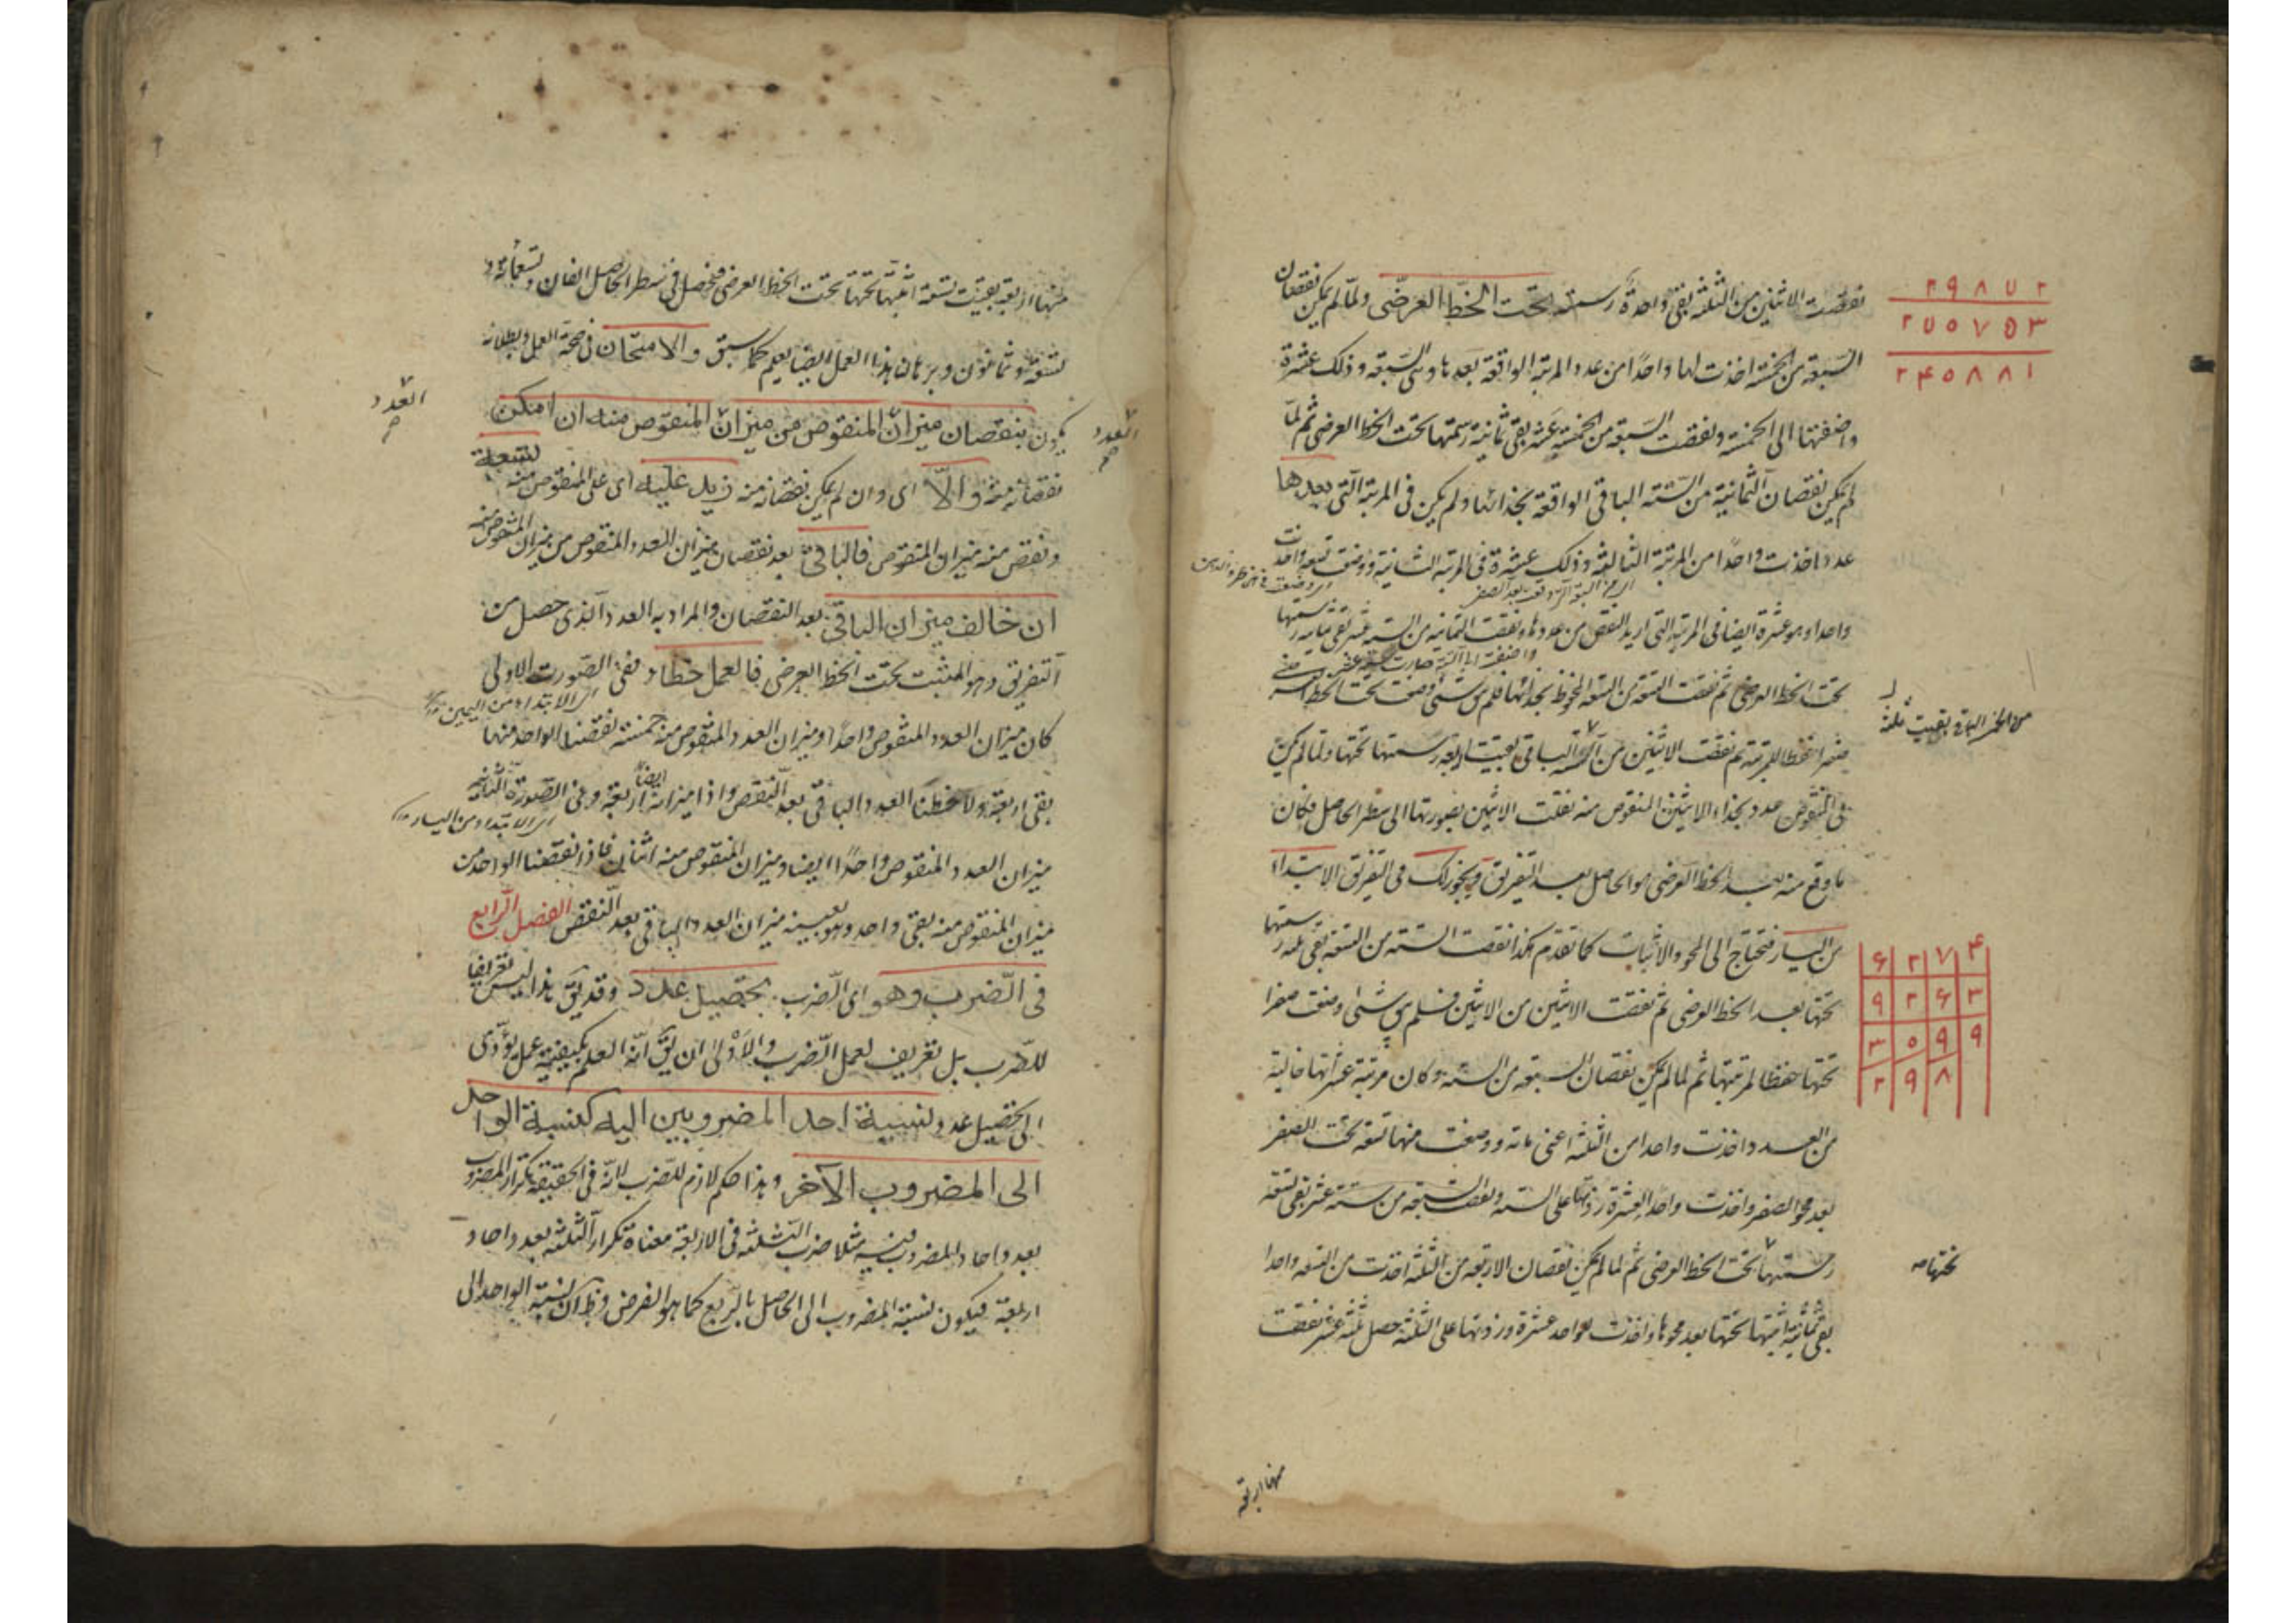 نقصت الاثنين من الثلثة بقى واحدة رسمته تحت الخط العرضى ولما لم يكن نقصان
السبعة من الخمسة اخذت لها واحدا من عدد المرتبة الواقعة بعدها وهى السبعة وذلك عشرة
واضفتها الى الخمسة ونقصت السبعة من الخمسة عشر بقى ثمانية رسمتها تحت الخط العرضى ثم لما
لم يكن نقصان الثمانية من الستة الباقى الواقعة بحذائها ولم يكن فى المرتبة التى بعدها
عدد اخذت واحدا من المرتبة الثالثة وذلك عشرة فى المرتبة الثانية ووضعت تسعة واخذت
واحدا وهو عشرة ايضا فى المرتبة التى اريد النقص من عددها ونقصت الثمانية من الستة عشر بقى ثمانية رسمتها
تحت الخط العرضى ثم نقصت التسعة من التسعة المحفوظ بحذائها فلم يبق شئ وضعت تحت الخط
صفرا حفظا للمرتبة ثم نقصت الاثنين من الستة الباقى بقيت اربعة رسمتها تحتها ولما لم يكن
فى المنقوص عدد بحذاء الاثنين المنقوص منه نقلت الاثنين بصورتها الى سطر الحاصل فكان
ما وقع منه بعد الخط العرضى هو الحاصل بعد التفريق ويجوز لك فى التفريق الابتداء
من اليسار فتحتاج الى المحو والاثبات كما تقدم هكذا نقصت الستة من التسعة بقى ثلثة رسمتها
تحتها بعد الخط العرضى ثم نقصت الاثنين من الاثنين فلم يبق شئ وضعت صفرا
تحتها حفظا لمرتبتها ثم لما لم يكن نقصان السبعة من الستة وكان مرتبة عشراتها خالية
من العدد اخذت واحدا من الثلثة اعنى مائة ووضعت منها تسعة تحت الصفر
بعد محو الصفر واخذت واحد العشرة زدتها على الستة ونقصت السبعة من ستة عشر بقى تسعة
رسمتها تحت الخط العرضى ثم لما لم يكن نقصان الاربعة من الثلثة اخذت من التسعة واحدا
بقى ثمانية اثبتها تحتها بعد محوها واخذت لواحد عشرة وزدتها على الثلثة حصل ثلثة عشر نقصت
من الخمسة الباقى بقيت ثلثة
تحتها صح
۶ ۲ ۷ ۴
۹ ۲ ۶ ۳
۳ ۰ ۹ ۹
۲ ۹ ۸
منها اربعة
منها اربعة بقيت تسعة اثبتها تحتها تحت الخط العرضى فحصل فى سطر الحاصل الفان وتسعمائة و
تسعة وثمانون وبرهان هذا العمل ايضا يعلم كما سبق والامتحان فى صحة العمل وبطلانه
يكون بنقصان ميزان المنقوص من ميزان المنقوص منه ان امكن
نقصانه منه والا اى وان لم يمكن نقصانه منه زيد عليه اى على المنقوص منه تسعة
ونقص منه ميزان المنقوص فالباقى بعد نقصان ميزان العدد المنقوص من ميزان المنقوص منه
ان خالف ميزان الباقى بعد النقصان والمراد به العدد الذى حصل من
التفريق وهو المثبت تحت الخط العرضى فالعمل خطاء ففى الصورة الاولى
اى الابتداء من اليمين
كان ميزان العدد المنقوص واحدا وميزان العدد المنقوص منه خمسة نقصنا الواحد منها
بقى اربعة ولاحظنا العدد الباقى بعد النقص واذا ميزانه ايضا اربعة وفى الصورة الثانية
اى الابتداء من اليسار
ميزان العدد المنقوص واحدا ايضا وميزان المنقوص منه اثنان فاذا نقصنا الواحد من
ميزان المنقوص منه بقى واحد وهو بعينه ميزان العدد الباقى بعد النقص الفصل الرابع
فى الضرب وهو اى الضرب تحصيل عدد وقد يق هذا ليس تعريفا
للضرب بل تعريف لعمل الضرب والاولى ان يق انه العلم بكيفية عمل يؤدى
الى تحصيل عدد نسبة احد المضروبين اليه كنسبة الواحد
الى المضروب الآخر وهذا حكم لازم للضرب لانه فى الحقيقة تكرار المضروب
بعدد احاد المضروب فيه مثلا ضرب الثلثة فى الاربعة معناه تكرار الثلثة بعدد احاد
اربعة فيكون نسبة المضروب الى الحاصل بالربع كما هو الفرض وظ ان نسبة الواحد الى
العدد
العدد